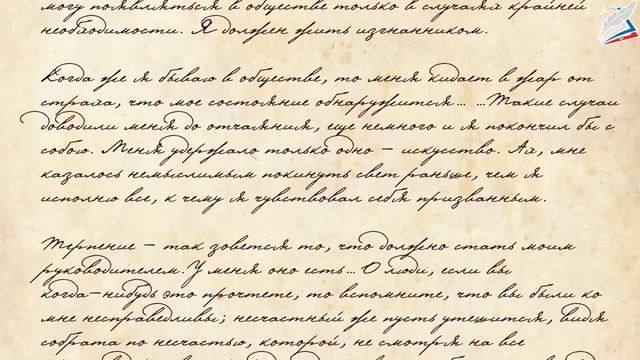 могу появляться в обществе только в случаях крайней
необходимости. Я должен жить изгнанником.
Когда же я бываю в обществе, то меня кидает в жар от
страха, что мое состояние обнаружится... ...Такие случаи
доводили меня до отчаяния, еще немного и я покончил бы с
собою. Меня удержало только одно – искусство. Ах, мне
казалось немыслимым покинуть свет раньше, чем я
исполню все, к чему я чувствовал себя призванным.
Терпение – так зовется то, что должно стать моим
руководителем. У меня оно есть... О люди, если вы
когда-нибудь это прочтете, то вспомните, что вы были ко
мне несправедливы; несчастный же пусть утешится, видя
собрата по несчастью, который, не смотря на все